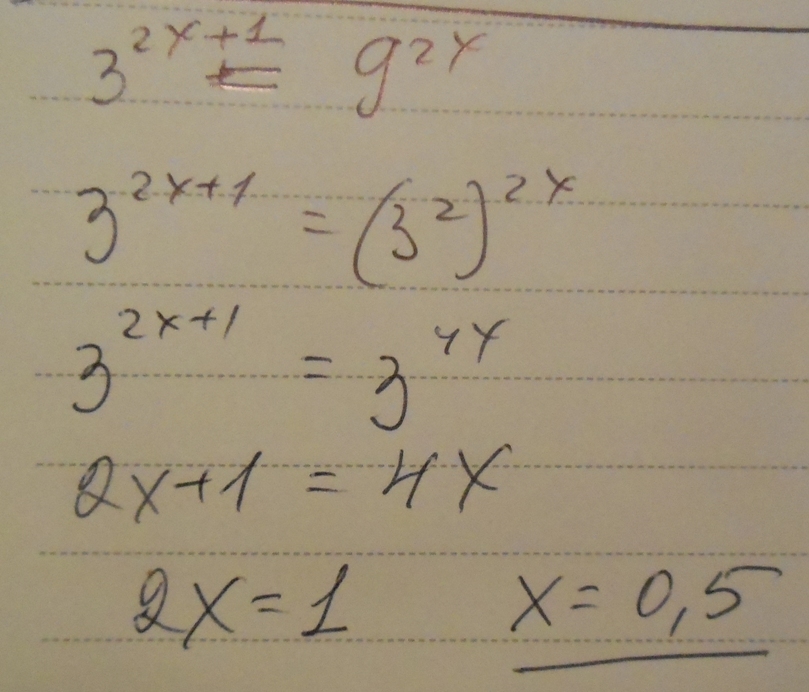 3^{2x+1} = 9^{2x}
3^{2x+1} = (3^2)^{2x}
3^{2x+1} = 3^{4x}
2x+1 = 4x
2x=1 x=0,5